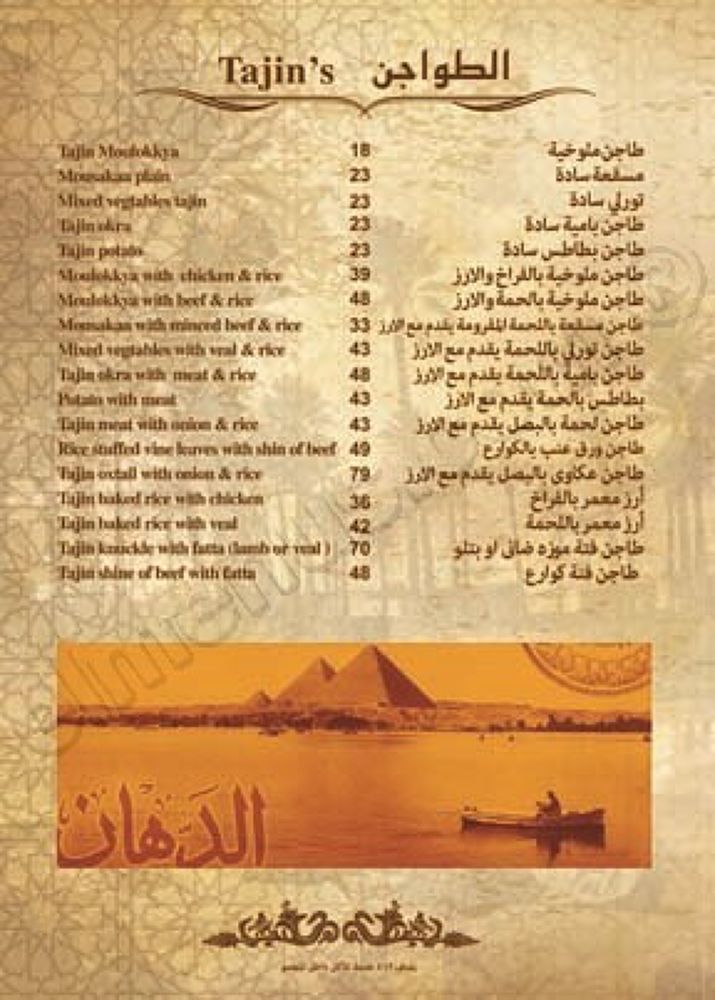 Tajin's الطواجن
Tajin Moulokkya 18 طاجن ملوخية
Mousakaa plain 23 مسقعة سادة
Mixed vegtables tajin 23 تورلي سادة
Tajin okra 23 طاجن بامية سادة
Tajin potato 23 طاجن بطاطس سادة
Moulokkya with chicken & rice 39 طاجن ملوخية بالفراخ والارز
Moulokkya with beef & rice 48 طاجن ملوخية بالحمة والارز
Mousakaa with minced beef & rice 33 طاجن مسقعة باللحمة المفرومة يقدم مع الارز
Mixed vegtables with veal & rice 43 طاجن تورلي باللحمة يقدم مع الارز
Tajin okra with meat & rice 48 طاجن بامية باللحمة يقدم مع الارز
Potato with meat 43 بطاطس بالحمة يقدم مع الارز
Tajin meat with onion & rice 43 طاجن لحمة بالبصل يقدم مع الارز
Rice stuffed vine leaves with shin of beef 49 طاجن ورق عنب بالكوارع
Tajin oxtail with onion & rice 79 طاجن عكاوي بالبصل يقدم مع الارز
Tajin baked rice with chicken 36 أرز معمر بالفراخ
Tajin baked rice with veal 42 أرز معمر باللحمة
Tajin knuckle with fatta (lamb or veal ) 70 طاجن فتة موزه ضانى او بتلو
Tajin shine of beef with fatta 48 طاجن فتة كوارع
الدهان